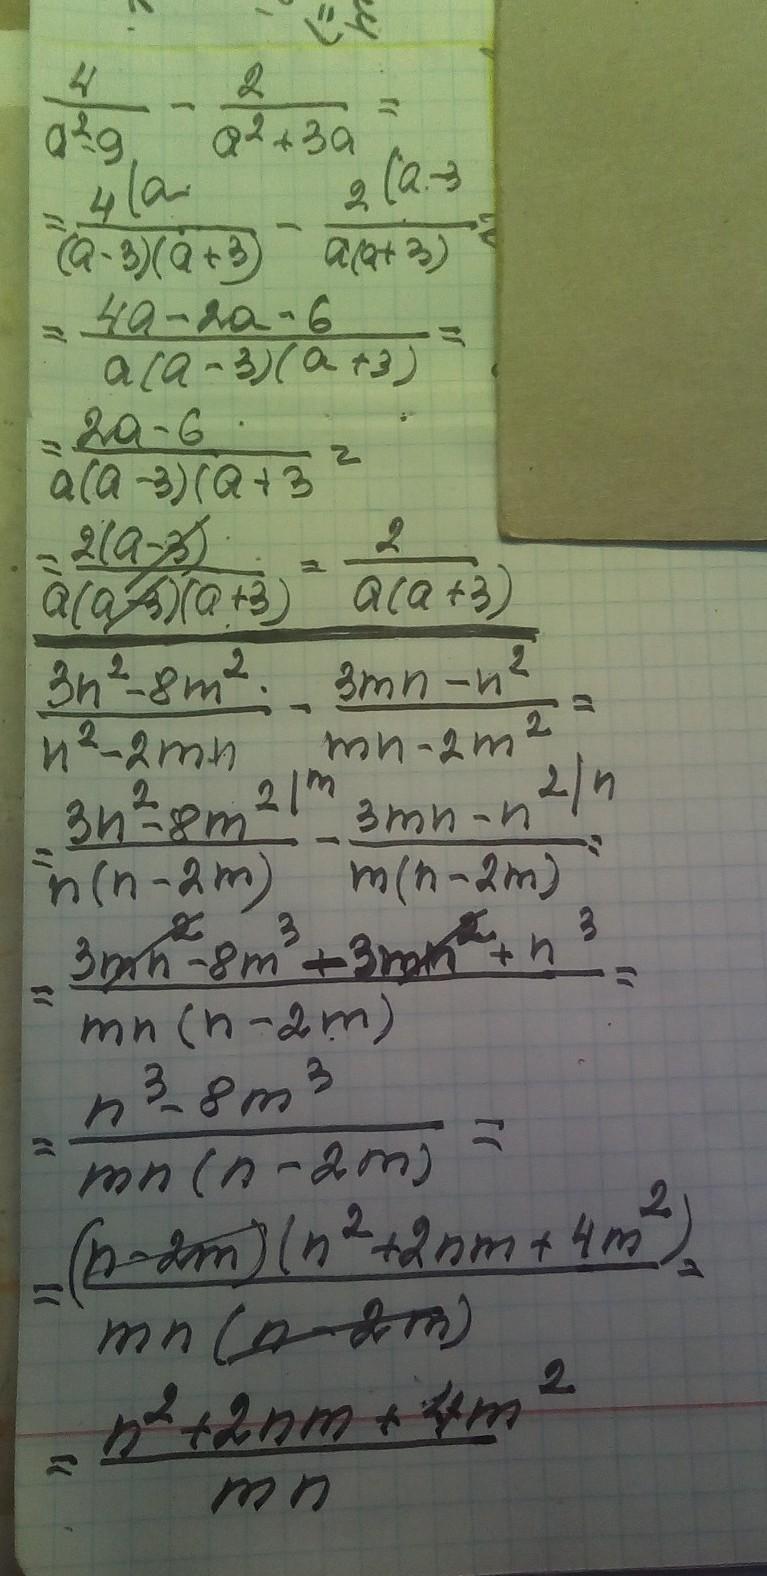 4/(a²-9) - 2/(a²+3a) =
= 4(a/((a-3)(a+3)) - 2(a-3/(a(a+3)) =
= (4a-2a-6)/(a(a-3)(a+3)) =
= (2a-6)/(a(a-3)(a+3 =
= 2(a-3)/(a(a-3)(a+3)) = 2/(a(a+3))
(3n²-8m²)/(n²-2mn) - (3mn-n²)/(mn-2m²) =
= (3n²-8m²|m)/(n(n-2m)) - (3mn-n²|n)/(m(n-2m)) =
= (3mn²-8m³-3mn²+n³)/(mn(n-2m)) =
= (n³-8m³)/(mn(n-2m)) =
= (n-2m)(n²+2nm+4m²)/(mn(n-2m)) =
= (n²+2nm+4m²)/(mn)